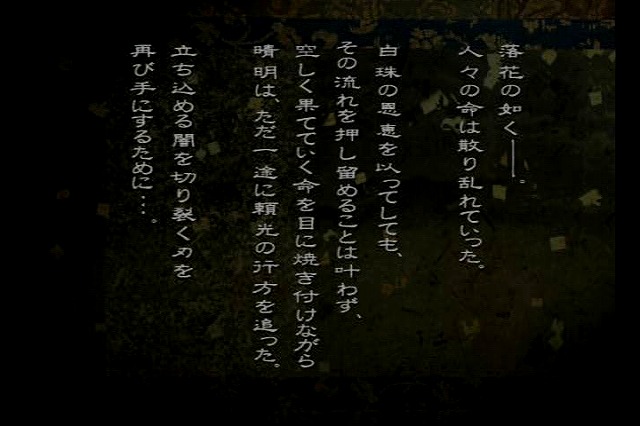 落花の如く――。
人々の命は散り乱れていった。
白珠の恩恵を以ってしても、
その流れを押し留めることは叶わず、
空しく果てていく命を目に焼き付けながら
晴明は、ただ一途に頼光の行方を追った。
立ち込める闇を切り裂く刃を
再び手にするために…。